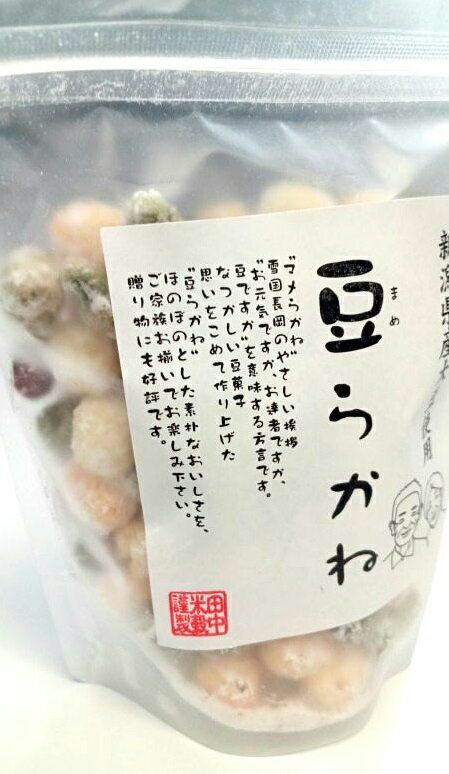 新潟県産
使用
豆らかね
まめ
"マメらかね"
雪国長岡のやさしい挨拶
"お元気ですか、お達者ですか、
豆ですか"を意味する方言です。
なつかしい豆菓子
思いをこめて作り上げた
"豆らかね"
ほのぼのとした素朴なおいしさを、
ご家族お揃いでお楽しみ下さい。
贈り物にも好評です。
田中
米穀
謹製